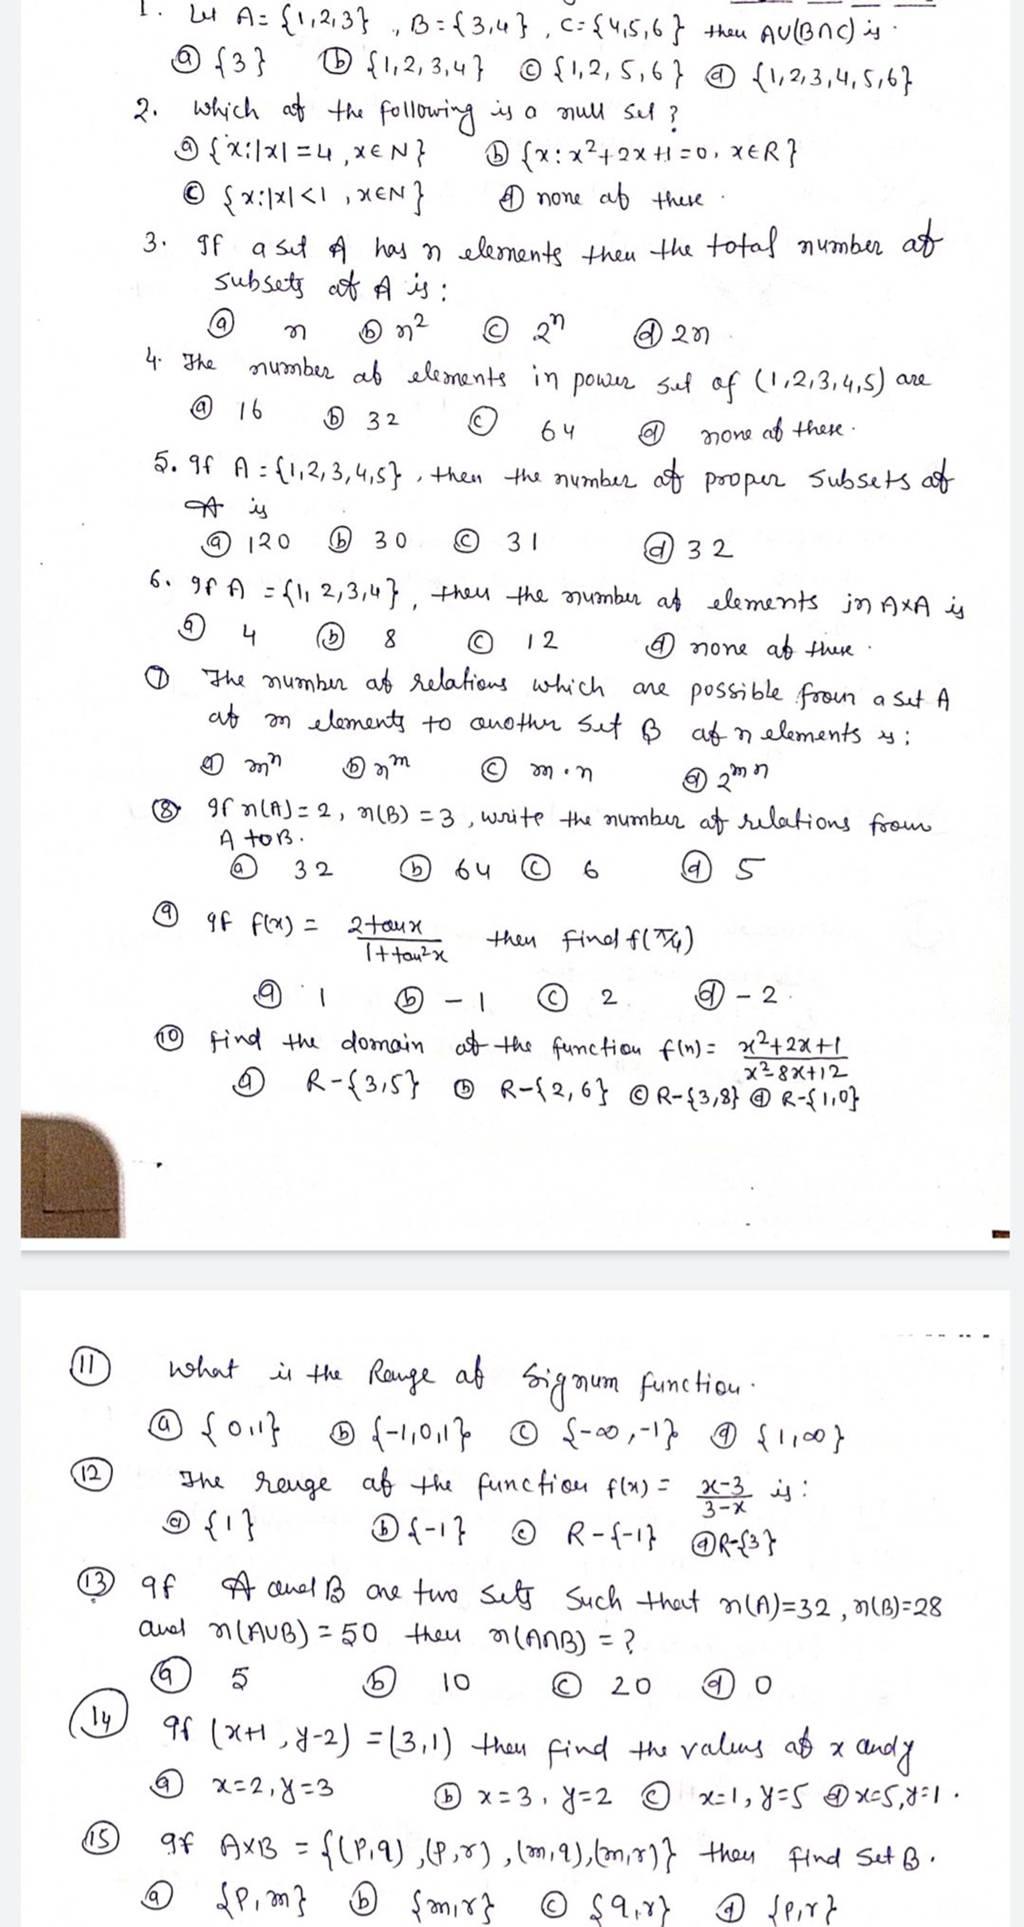 1. Let A = {1,2,3}, B = {3,4}, C = {4,5,6} then A∪(B∩C) is.
ⓐ {3} ⓑ {1,2,3,4} ⓒ {1,2,5,6} ⓓ {1,2,3,4,5,6}
2. Which of the following is a null set?
ⓐ {x:|x|=4, x∈N} ⓑ {x: x²+2x+1=0, x∈R}
ⓒ {x:|x|<1, x∈N} ⓓ none of these.
3. If a set A has n elements then the total number of
subsets of A is:
ⓐ n ⓑ n² ⓒ 2ⁿ ⓓ 2n.
4. The number of elements in power set of (1,2,3,4,5) are
ⓐ 16 ⓑ 32 ⓒ 64 ⓓ none of these.
5. If A = {1,2,3,4,5}, then the number of proper subsets of
A is
ⓐ 120 ⓑ 30 ⓒ 31 ⓓ 32
6. If A = {1,2,3,4}, then the number of elements in A×A is
ⓐ 4 ⓑ 8 ⓒ 12 ⓓ none of these.
⑦ The number of relations which are possible from a set A
of m elements to another set B of n elements is:
ⓐ mⁿ ⓑ nᵐ ⓒ m·n ⓓ 2ᵐⁿ
⑧ If n(A)=2, n(B)=3, write the number of relations from
A to B.
ⓐ 32 ⓑ 64 ⓒ 6 ⓓ 5
⑨ If f(x) = 2tanx / 1+tan²x then find f(π/4)
ⓐ 1 ⓑ -1 ⓒ 2 ⓓ -2.
⑩ find the domain of the function f(x) = x²+2x+1 / x²-8x+12
ⓐ R-{3,5} ⓑ R-{2,6} ⓒ R-{3,8} ⓓ R-{1,0}
⑪ What is the Range of Signum function.
ⓐ {0,1} ⓑ {-1,0,1} ⓒ {-∞,-1} ⓓ {1,∞}
⑫ The range of the function f(x) = x-3 / 3-x is:
ⓐ {1} ⓑ {-1} ⓒ R-{-1} ⓓ R-{3}
⑬ If A and B are two sets Such that n(A)=32, n(B)=28
and n(A∪B) = 50 then n(A∩B) = ?
ⓐ 5 ⓑ 10 ⓒ 20 ⓓ 0
⑭ If (x+1, y-2) = (3,1) then find the values of x and y
ⓐ x=2, y=3 ⓑ x=3, y=2 ⓒ x=1, y=5 ⓓ x=5, y=1.
⑮ If A×B = {(p,q),(p,r),(m,q),(m,r)} then find set B.
ⓐ {p,m} ⓑ {m,r} ⓒ {q,r} ⓓ {p,r}